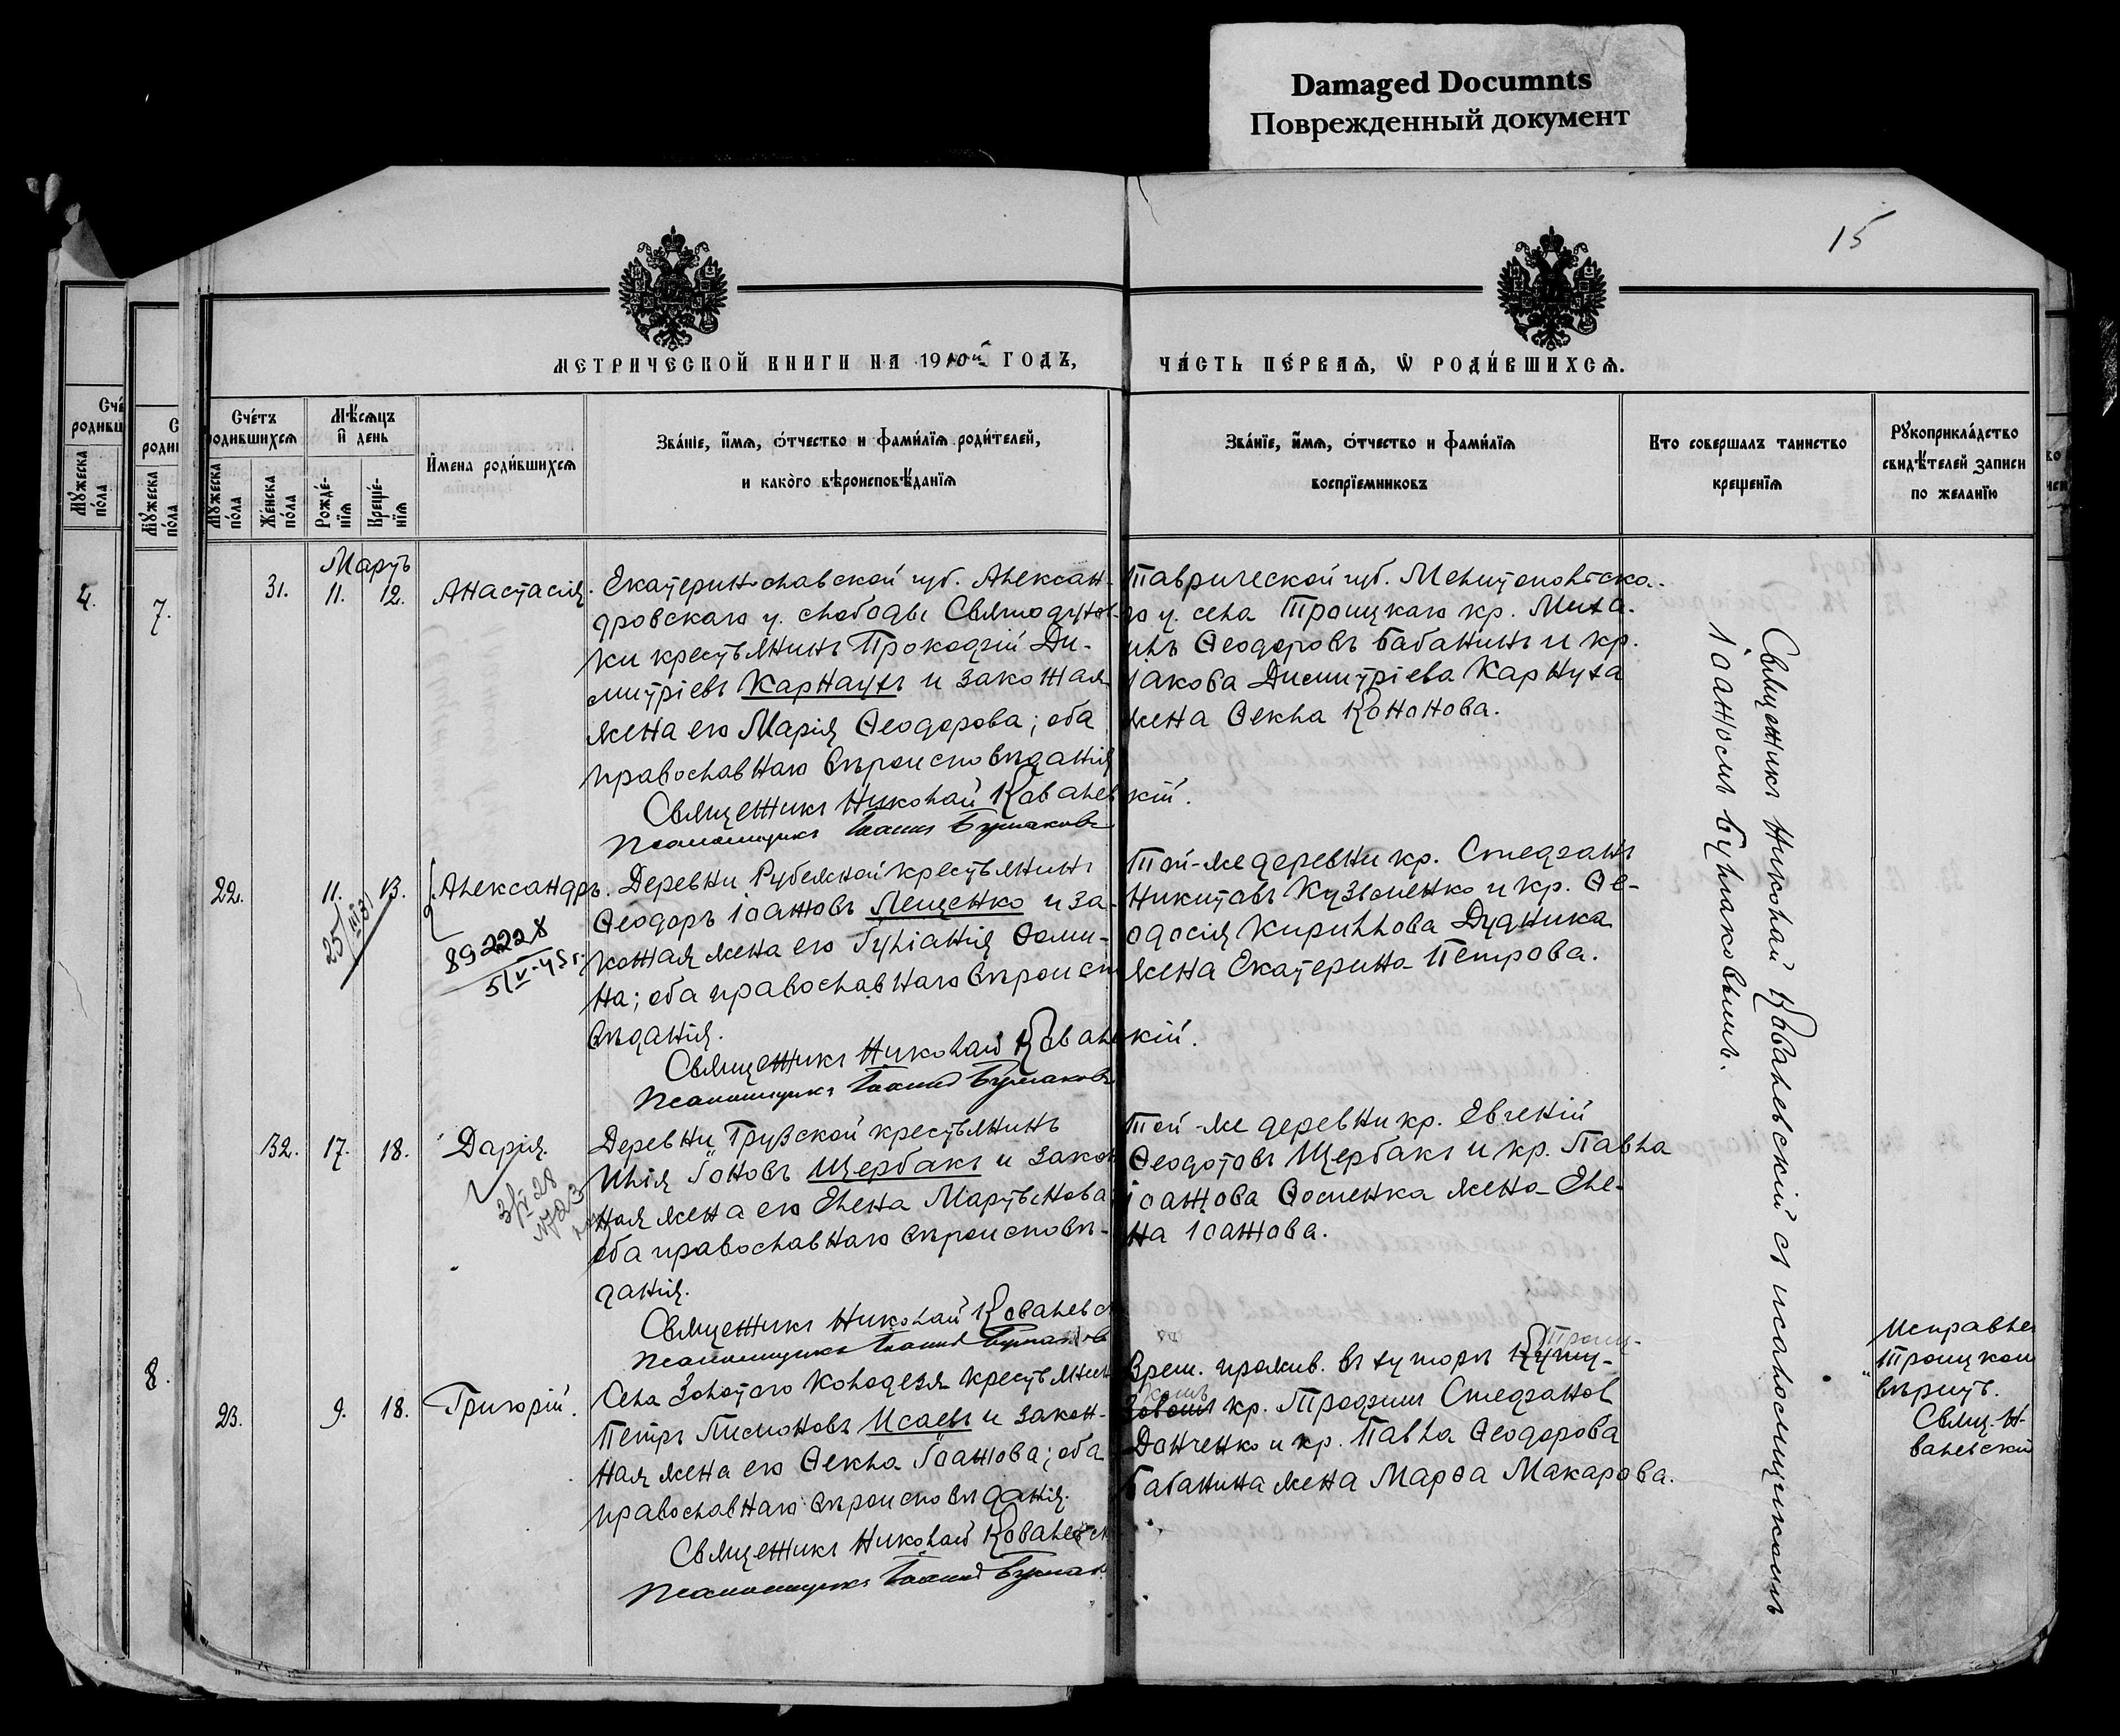 Damaged Documnts
Поврежденный документ
15
МЕТРИЧЕСКОЙ КНИГИ НА 1910й ГОДЪ,
ЧА́СТЬ ПЕ́РВАѦ, Ѡ РОДИ́ВШИХСѦ.
Сче́тъ родившихсѧ
Мѣ́сѧцъ и҆ день
И҆мена роди́вшихсѧ
Зва́нїе, и҆́мѧ, ѻ҆́тчество и фами́лїѧ роди́телей,
и како́го вѣроисповѣ́данїѧ
Зва́нїе, и҆́мѧ, ѻ҆́тчество и фами́лїѧ
воспрїемниковъ
Кто совершалъ таинство
крещенїѧ
Рꙋкоприкла́дство
свидѣ́телей записи
по желанїю
Мꙋжеска по́ла
Же́нска по́ла
Рожде́-нїѧ
Креще́-нїѧ
4.
7.
8.
Мартъ
31. 11. 12. Анастасія.
Екатеринославской губ. Алексан-
дровскаго у. слободы Святодухов-
ки крестьянинъ Прокофій Ди-
митріевъ Карнаухъ и законная
жена его Марія Ѳеодорова; оба
православнаго вѣроисповѣданія
Священникъ Николай Ковалевскій.
Псаломщикъ Іоаннъ Бурлаковъ
Таврической губ. Мелитопольска-
го у. села Троицкаго кр. Миха-
илъ Ѳеодоровъ Бабанинъ и кр.
Іакова Димитріева Карнуха
жена Ѳекла Кононова.
22. 11. 13. Александръ.
25/III 31
892228
5/V-45 г.
Деревни Рубежной крестьянинъ
Ѳеодоръ Іоанновъ Лещенко и за-
конная жена его Іуліанія Ѳоми-
на; оба православнаго вѣроиспо
вѣданія.
Священникъ Николай Ковалевскій.
Псаломщикъ Іоаннъ Бурлаковъ
Той-же деревни кр. Стефанъ
Никитовъ Кузьменко и кр. Ѳе-
одосія Кириллова Дудника
жена Екатерина Петрова.
32. 17. 18. Дарія.
Деревни Грузской крестьянинъ
Илія Іоновъ Щербакъ и закон
ная жена его Елена Мартынова
оба православнаго вѣроисповѣ-
данія.
Священникъ Николай Ковалевск
Псаломщикъ Іоаннъ Бурлаковъ
Той-же деревни кр. Евгеній
Ѳеодотовъ Щербакъ и кр. Павла
Іоаннова Ѳоменка жена Еле-
на Іоаннова.
23. 9. 18. Григорій.
Села Золотого Колодезя крестьянинъ
Петръ Пимоновъ Исаевъ и закон-
ная жена его Ѳекла Іоаннова; оба
православнаго вѣроисповѣданія.
Священникъ Николай Ковалевск
Псаломщикъ Іоаннъ Бурлак
Врем. прожив. въ хуторѣ
кр. Трофимъ Стефановъ
Данченко и кр. Павла Ѳеодорова
Бабанина жена Марѳа Макарова.
Священникъ Николай Ковалевскій съ псаломщикомъ
Іоанномъ Бурлаковымъ.
Исправле
Троицком
вѣрить.
Свящ. Н.
валевскій